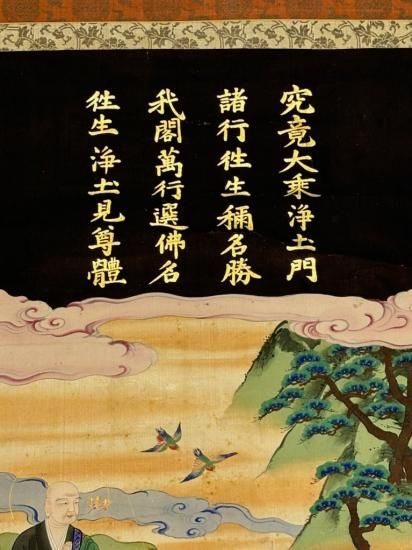 究竟大乘浄土門
諸行徃生稱名勝
我閣萬行選佛名
徃生浄土見尊體